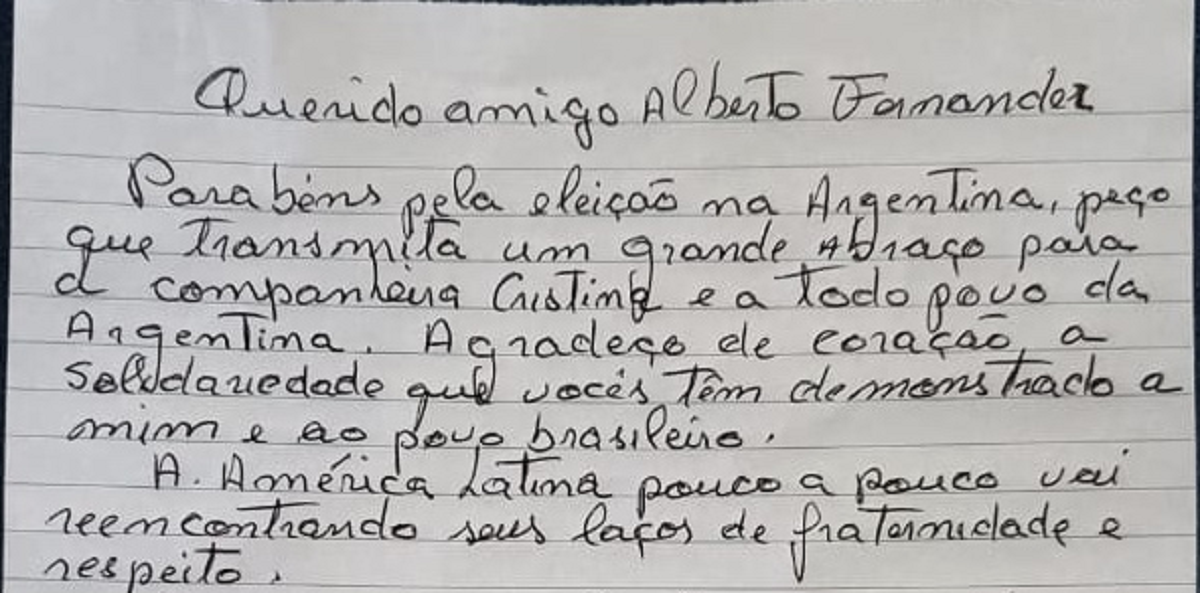 Querido amigo Alberto Fernandez
Parabéns pela eleição na Argentina, peço
que transmita um grande Abraço para
a companheira Cristina e a todo povo da
Argentina. Agradeço de coração, a
solidariedade que vocês têm demonstrado a
mim e ao povo brasileiro.
A. América Latina pouco a pouco vai
reencontrando seus laços de fraternidade e
respeito.